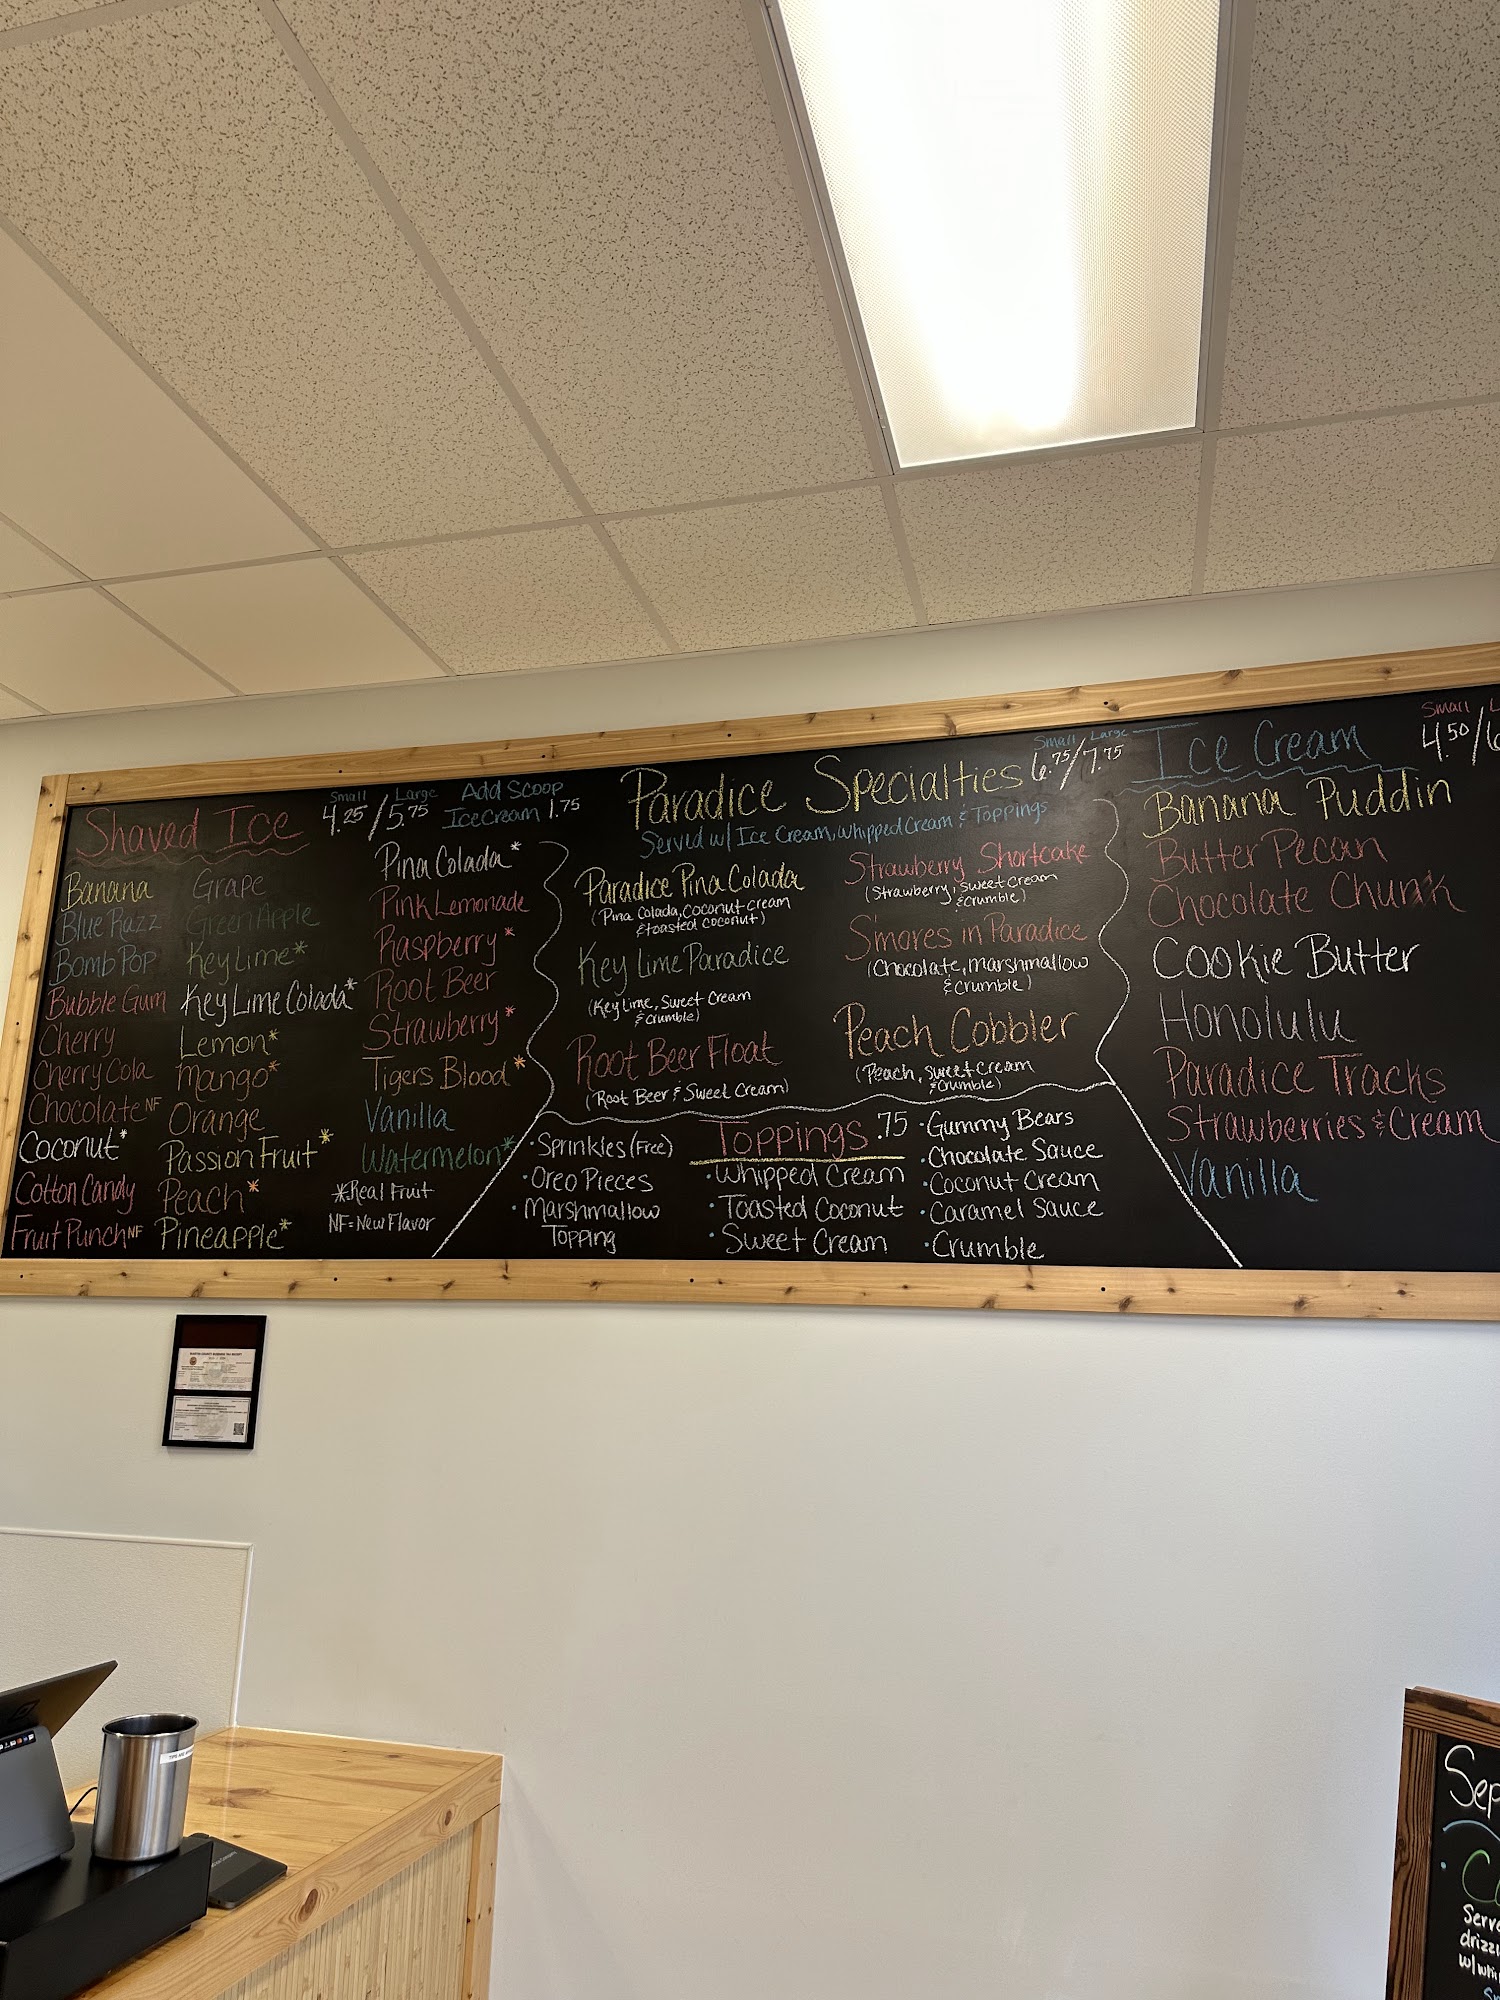 Shaved Ice
Small Large
4.25/5.75
Add Scoop
Ice Cream 1.75
Banana
Blue Razz
Bomb Pop
Bubble Gum
Cherry
Cherry Cola
Chocolate NF
Coconut*
Cotton Candy
Fruit Punch NF
Grape
Green Apple
Key Lime*
Key Lime Colada*
Lemon*
Mango*
Orange
Passion Fruit*
Peach*
Pineapple*
Pina Colada*
Pink Lemonade
Raspberry*
Root Beer
Strawberry*
Tigers Blood*
Vanilla
Watermelon*
*Real Fruit
NF-New Flavor
Paradice Specialties
Small Large
6.75/7.75
Served w/ Ice Cream, Whipped Cream & Toppings
Paradice Pina Colada
(Pina Colada, Coconut Cream
& toasted coconut)
Key Lime Paradice
(Key Lime, Sweet Cream
& Crumble)
Root Beer Float
(Root Beer & Sweet Cream)
Strawberry Shortcake
(Strawberry, Sweet Cream
& Crumble)
S'mores in Paradice
(Chocolate, Marshmallow
& Crumble)
Peach Cobbler
(Peach, Sweet Cream
& Crumble)
Toppings .75
• Sprinkles (Free)
• Oreo Pieces
• Marshmallow
Topping
• Whipped Cream
• Toasted Coconut
• Sweet Cream
• Gummy Bears
• Chocolate Sauce
• Coconut Cream
• Caramel Sauce
• Crumble
Ice Cream
Small L
4.50/6
Banana Puddin
Butter Pecan
Chocolate Chunk
Cookie Butter
Honolulu
Paradice Tracks
Strawberries & Cream
Vanilla
MARTIN COUNTY BUSINESS TAX RECEIPT
TIPS ARE
Sep
• C
Serve
drizz
w/whi